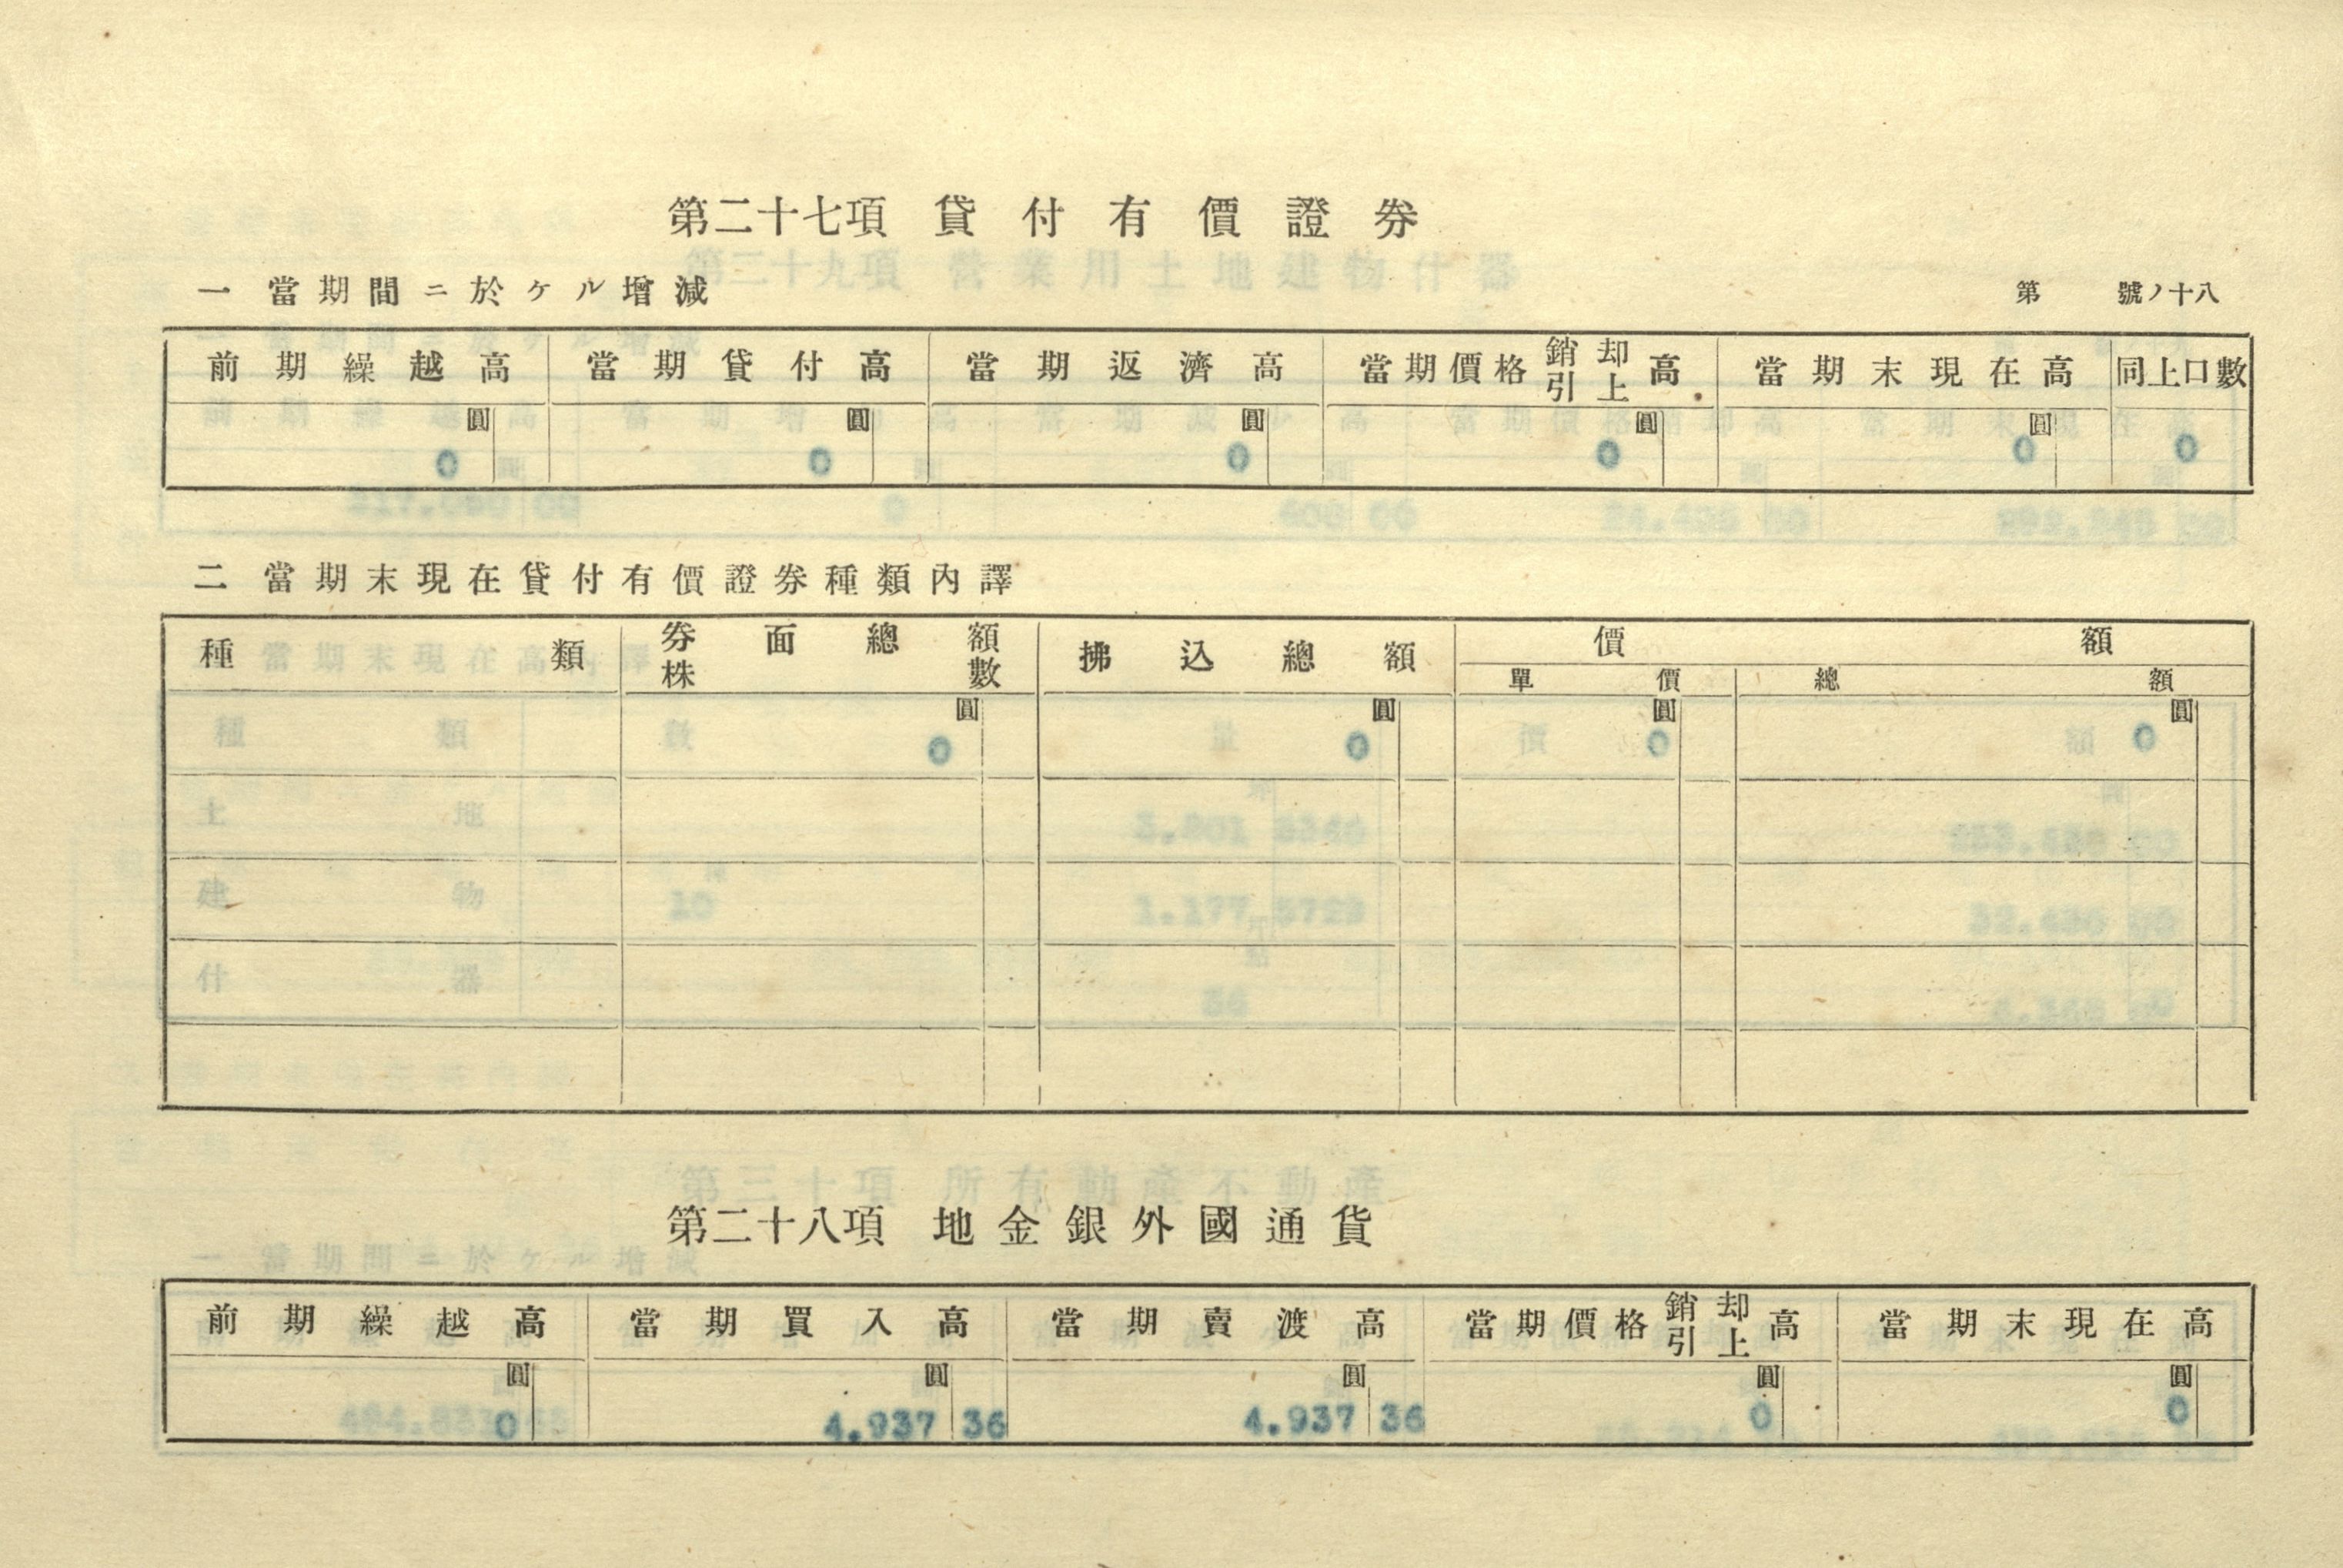 第二十七項 貸付有價證券
一 當期間ニ於ケル增減
第 號ノ十八
前期繰越高 當期貸付高 當期返濟高 當期價格銷却引上高 當期末現在高 同上口數
圓 圓 圓 圓 圓
0 0 0 0 0 0
二 當期末現在貸付有價證券種類內譯
種類 券面總額 株數 拂込總額 價額
單價 總額
圓 圓 圓 圓
0 0 0 0
第二十八項 地金銀外國通貨
前期繰越高 當期買入高 當期賣渡高 當期價格銷却引上高 當期末現在高
圓 圓 圓 圓 圓
0 4.937 36 4.937 36 0 0